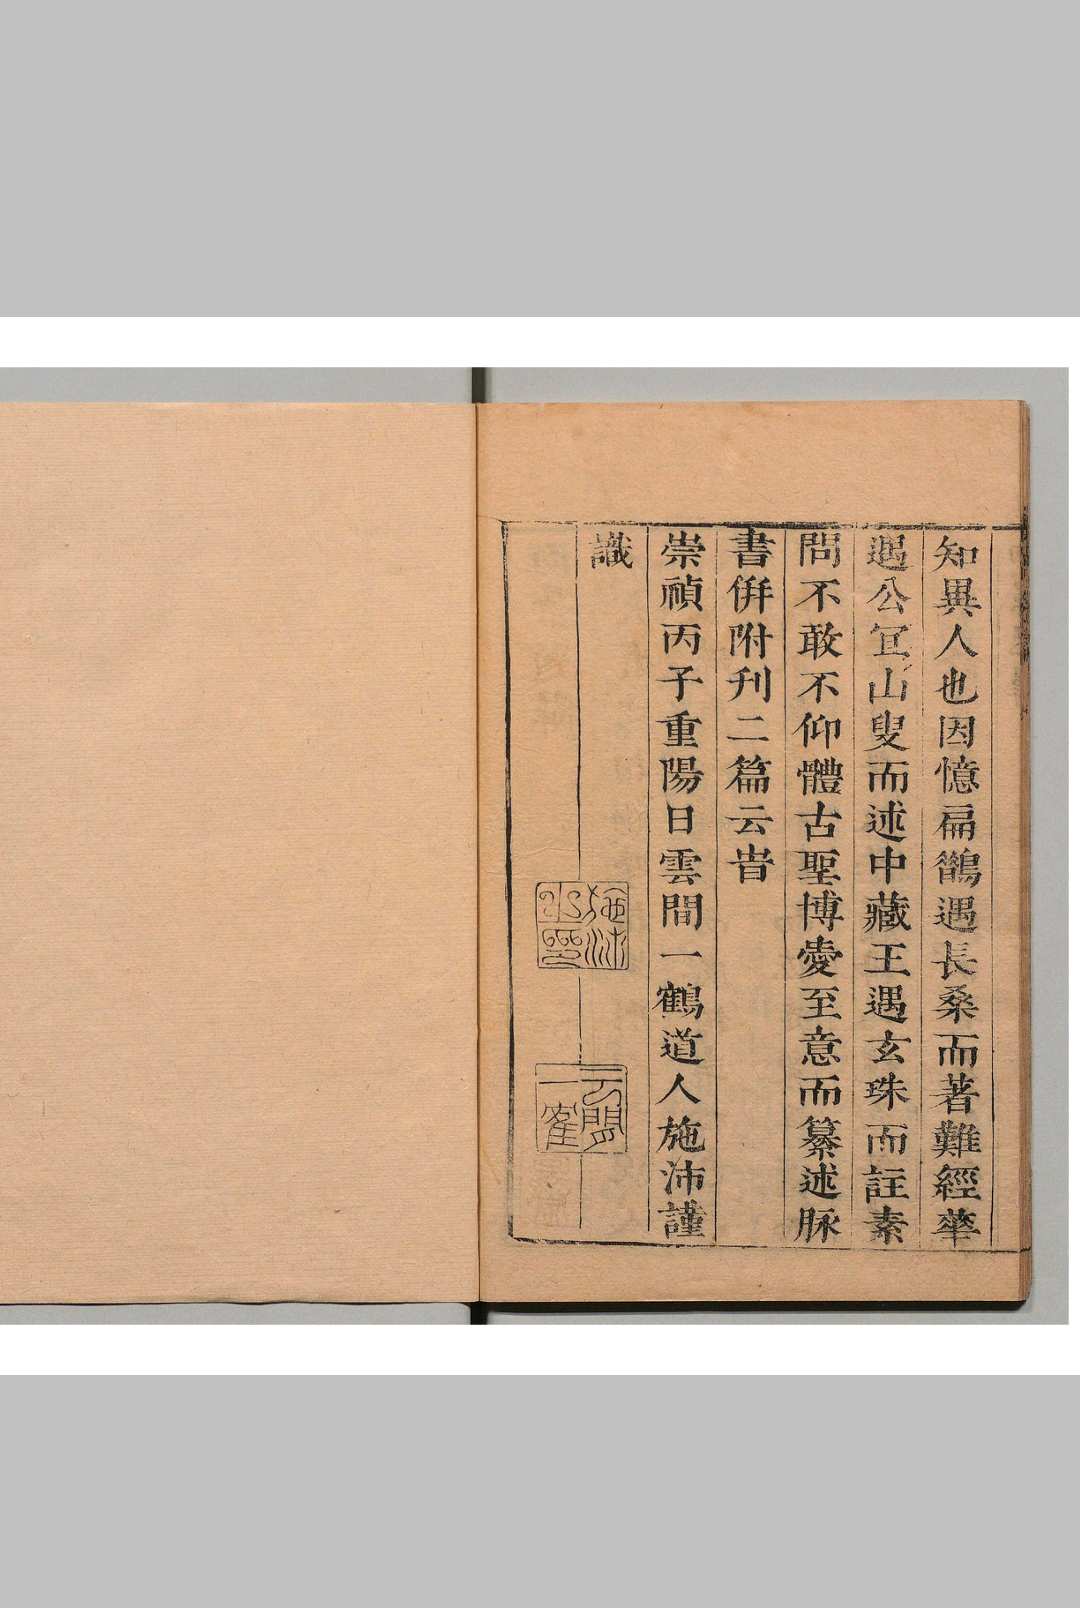 知異人也因憶扁鵲遇長桑而著難經華
遇公冝山叟而述中藏王遇玄珠而註素
問不敢不仰體古聖博愛至意而纂述脉
書倂附刋二篇云旹
崇禎丙子重陽日雲間一鶴道人施沛謹
識
施沛
一寉